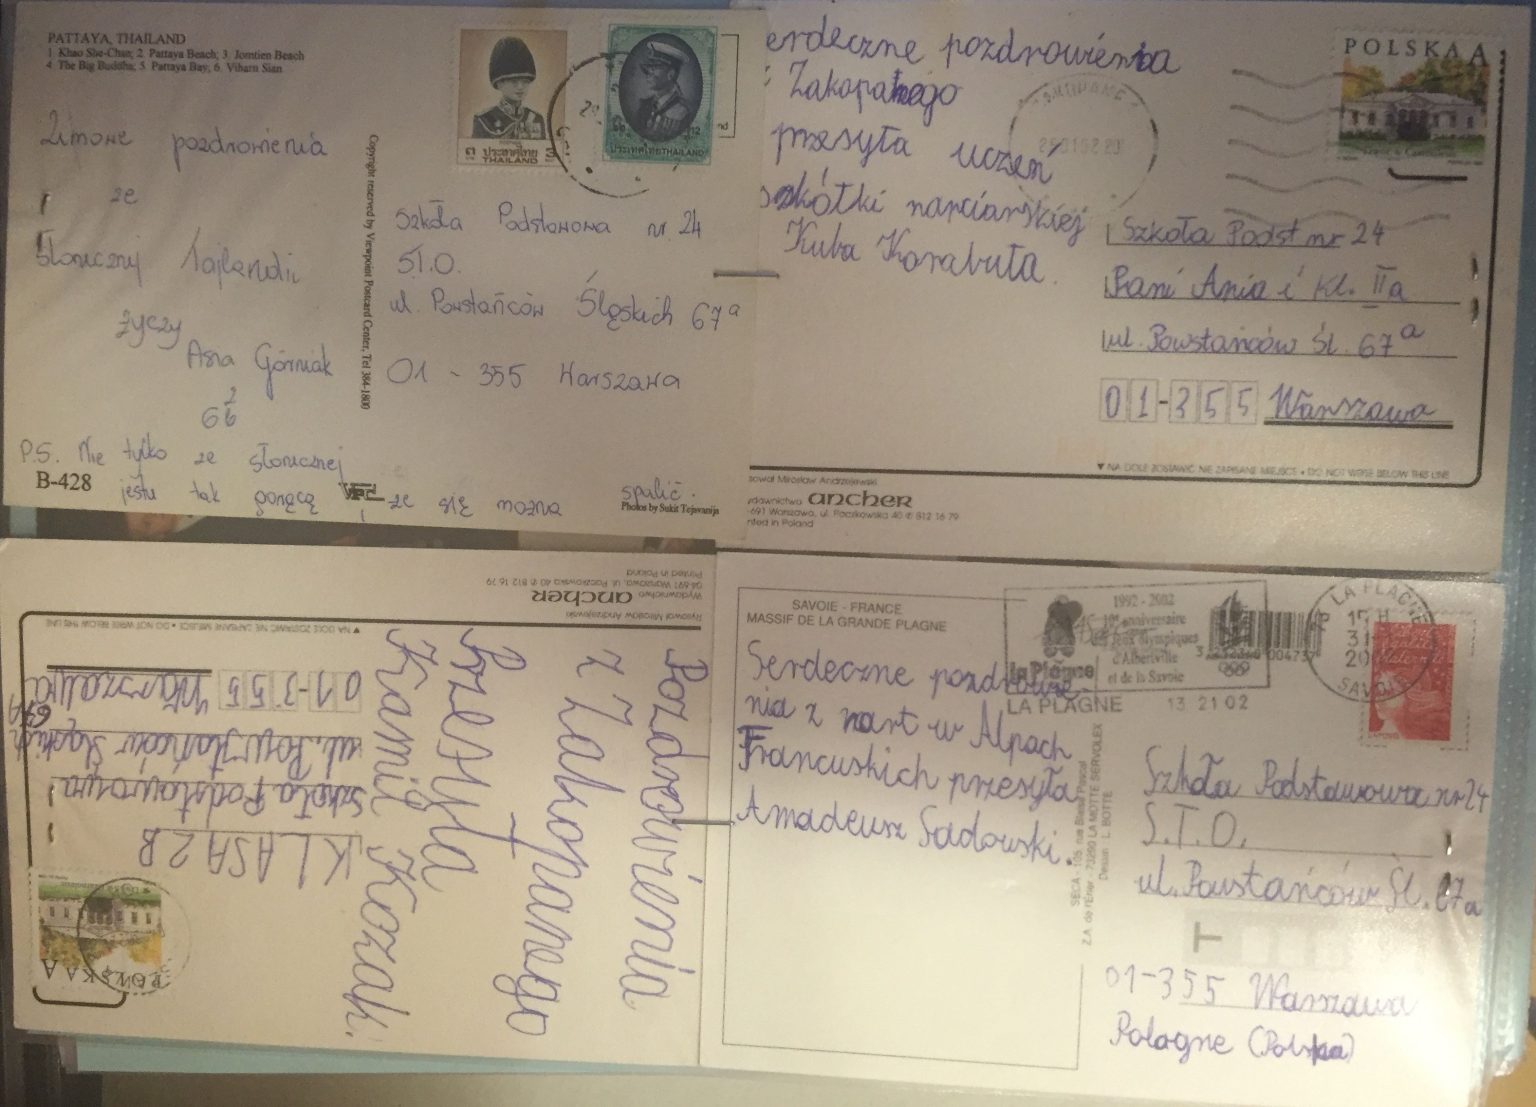 PATTAYA, THAILAND
1 Khao She-Chan; 2 Pattaya Beach; 3 Jomtien Beach
4 The Big Buddha; 5 Pattaya Bay; 6 Viharn Sian
Zimowe pozdrowienia
ze
słonecznej Tajlandii
życzy
Asia Górniak
6b
P.S. Nie tylko ze słonecznej
jestu tak gorąco że się można spalić.
B-428
VPC
Photos by Sukit Tejavanija
Copyright reserved by Viewpoint Postcard Center, Tel 384-1800
๓ ประเทศไทย 3
THAILAND
ประเทศไทย THAILAND
Szkoła Podstawowa nr. 24
S.T.O.
ul. Powstańców Śląskich 67a
01-355 Warszawa
erdeczne pozdrowienia
Zakopanego
przesyła uczeń
szkółki narciarskiej
Kuba Korabuła.
POLSKA A
Szkoła Podst nr 24
Pani Ania i Kl. IIa
ul. Powstańców Śl. 67a
01-355 Warszawa
▼ NA DOLE ZOSTAWIĆ NIE ZAPISANE MIEJSCE • DO NOT WRITE BELOW THIS LINE
sował Mirosław Andrzejewski
ydawnictwo ancher
-691 Warszawa, ul. Paczkowska 40 ✆ 812 16 79
nted in Poland
Pozdrowienia
z Zakopanego
Przesyła
Kamil Kozak.
Rysował Mirosław Andrzejewski
Wydawnictwo ancher
04-691 Warszawa, ul. Paczkowska 40 ✆ 812 16 79
Printed in Poland
▼ NA DOLE ZOSTAWIĆ NIE ZAPISANE MIEJSCE • DO NOT WRITE BELOW THIS LINE
POLSKA A
KLASA 2B
Szkoła Podstawowa
ul. Powstańców Śląskich 67A
01-355 Warszawa
SAVOIE - FRANCE
MASSIF DE LA GRANDE PLAGNE
Serdeczne pozdrowie-
nia z nart w Alpach
Francuskich przesyła
Amadeusz Sadowski.
1992 - 2002
10e anniversaire
Jeux olympiques
d'Albertville
et de la Savoie
la Plagne
LA PLAGNE 13 21 02
73 LA PLAGNE
15 H
SAVOIE
SECA - 105, rue Blaise Pascal
Z.A. de l'Erier - 73290 LA MOTTE SERVOLEX
Dessin: L. BOTTE
Szkoła Podstawowa nr 24
S.T.O.
ul. Powstańców Śl. 67a
T
01-355 Warszawa
Pologne (Polska)